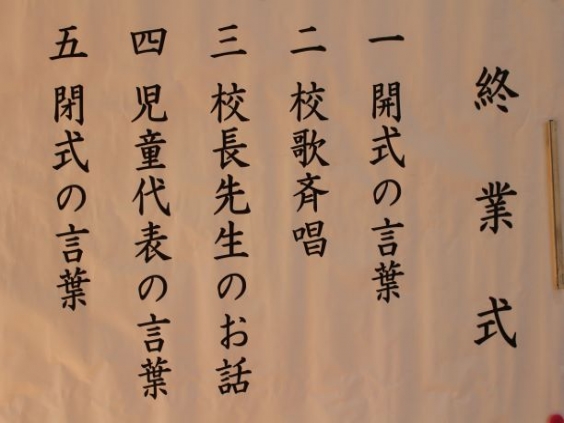 終業式
一 開式の言葉
二 校歌斉唱
三 校長先生のお話
四 児童代表の言葉
五 閉式の言葉